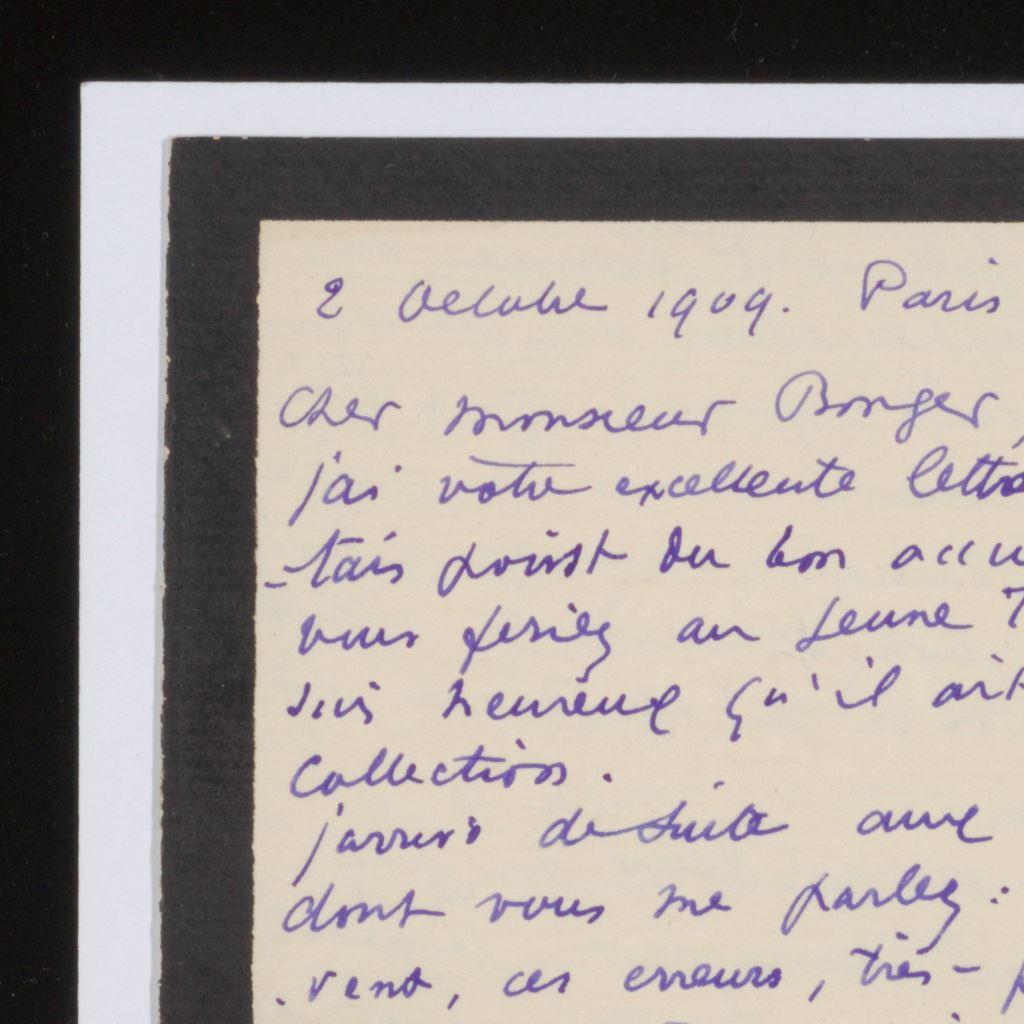 2 Octobre 1909. Paris
Cher monsieur Bonger,
j'ai votre excellente lettre
-tais point du bon accu
vous feriez au jeune
suis heureux qu'il ait
Collection.
j'arrive de suite aux
dont vous me parlez :
vent, ces erreurs, très-